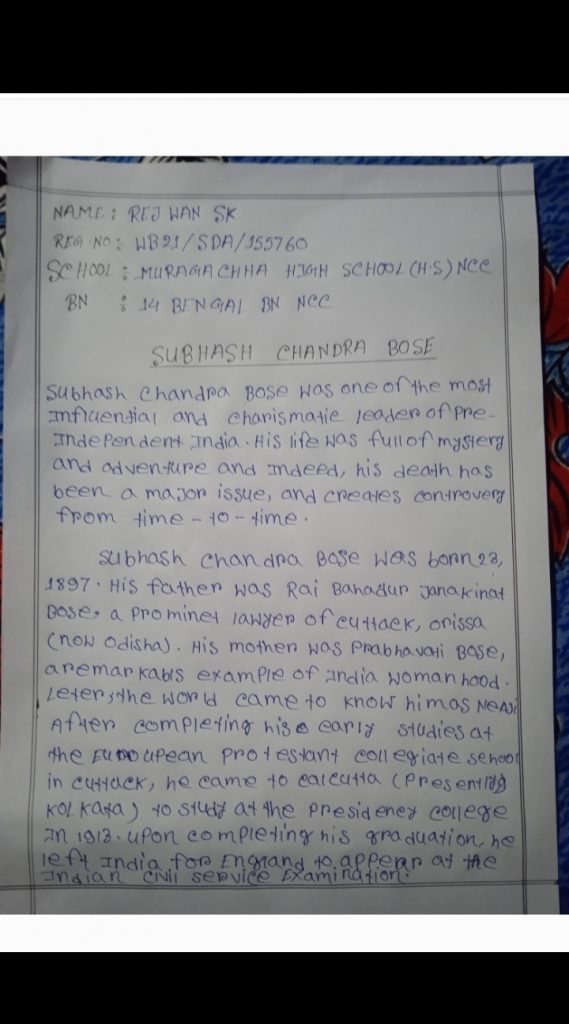 NAME : REJWAN SK
REG NO : WB21/SDA/155760
SCHOOL : MURAGACHHA HIGH SCHOOL (H.S) NCC
BN : 14 BENGAL BN NCC
SUBHASH CHANDRA BOSE
Subhash Chandra Bose was one of the most
influential and charismatic leader of pre-
independent India. His life was full of mystery
and adventure and indeed, his death has
been a major issue, and creates controvery
from time-to-time.
Subhash Chandra Bose was born 23,
1897. His father was Rai Bahadur Janakinat
Bose, a prominet lawyer of cuttack, orissa
(now Odisha). His mother was Prabhavati Bose,
a remarkabls example of India womanhood.
Leter, the world came to know him as Netaji
After completing his early studies at
the European protestant collegiate school
in cuttack, he came to calcutta (presently
Kolkata) to study at the presidency college
in 1913. upon completing his graduation, he
left India for England to appear at the
Indian civil service Examination.